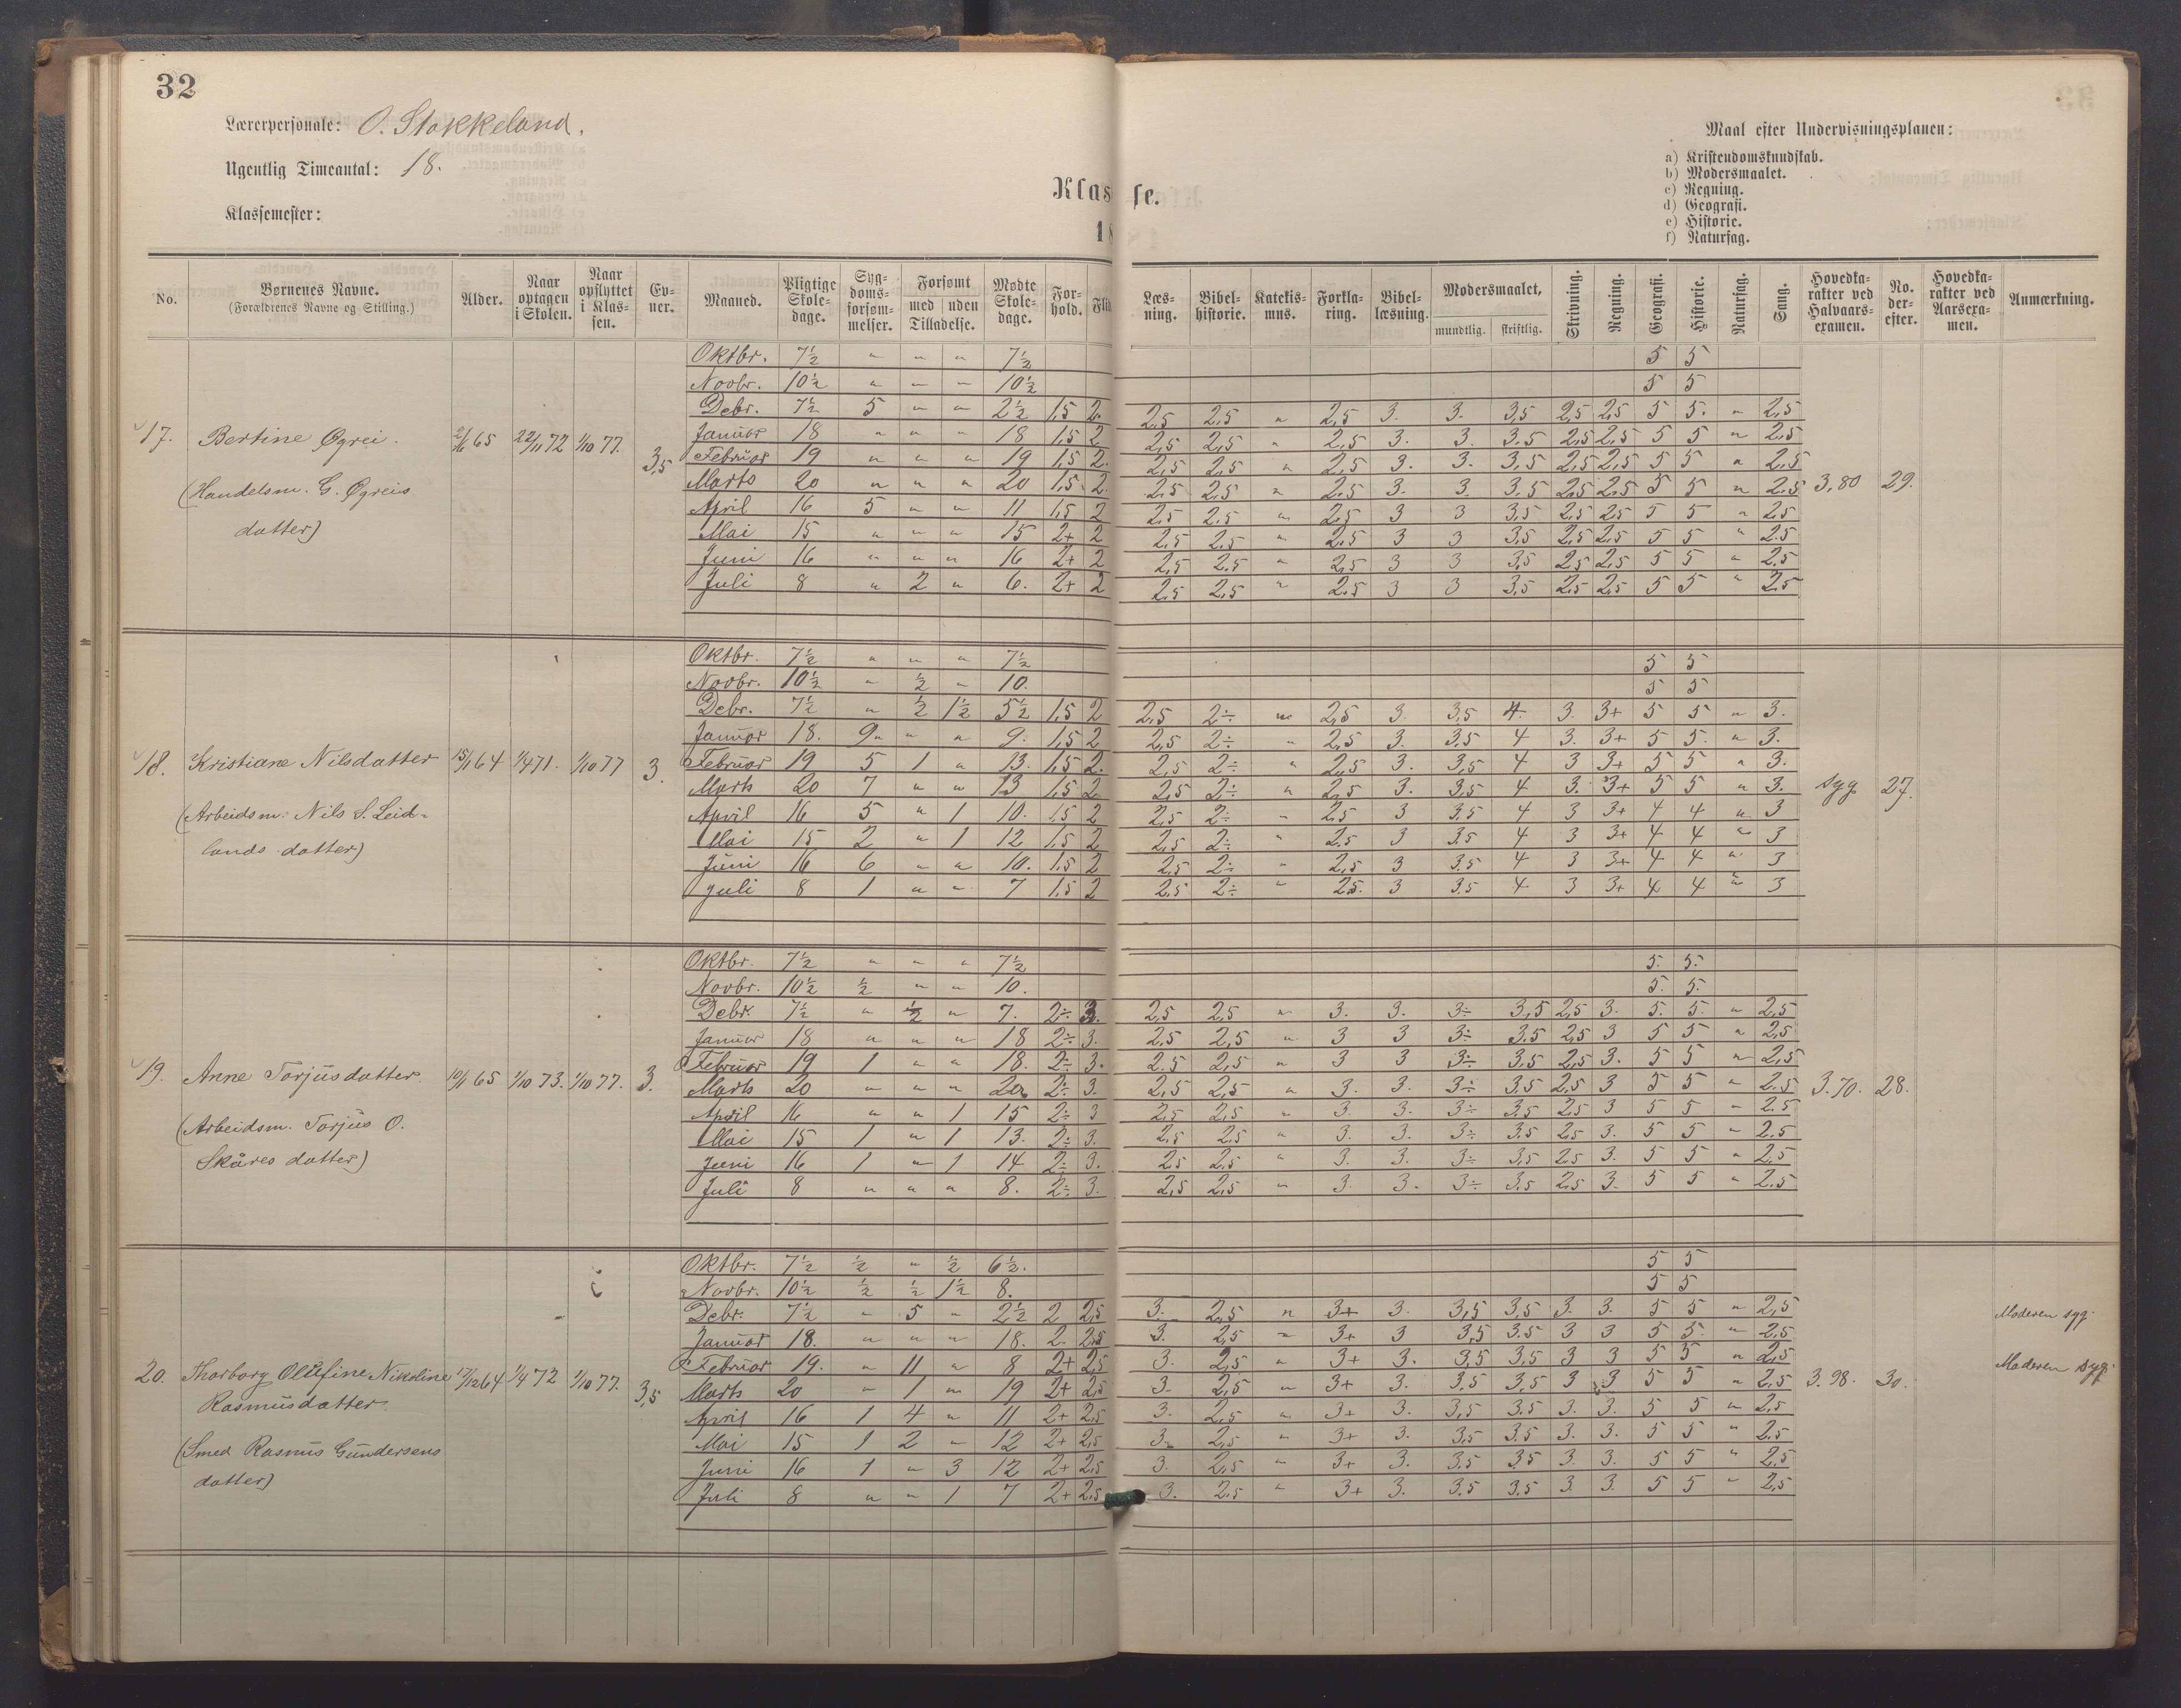 32
Lærerpersonale: O. Stokkeland.
Ugentlig Timeantal: 18.
Klassemester:
Klasse.
18
Maal efter Undervisningsplanen:
a) Kristendomskundskab.
b) Modersmaalet.
c) Regning.
d) Geografi.
e) Historie.
f) Naturfag.
No. | Børnenes Navne. (Forældrenes Navne og Stilling.) | Alder. | Naar optagen i Skolen. | Naar opflyttet i Klassen. | Evner. | Maaned. | Pligtige Skoledage. | Sygdomsforsømmelser. | Forsømt med Tilladelse. | uden Tilladelse. | Mødte Skoledage. | Forhold. | Flid | Læsning. | Bibelhistorie. | Katekismus. | Forklaring. | Bibellæsning. | Modersmaalet, mundtlig. | skriftlig. | Skrivning. | Regning. | Geografi. | Historie. | Naturfag. | Sang. | Hovedkarakter ved Halvaarsexamen. | No. derefter. | Hovedkarakter ved Aarsexamen. | Anmærkning.
17. Bertine Øgrei. 2/6 65 22/11 72 1/10 77. 3,5
(Handelsm. G. Øgreis
datter)
3,80 29.
Oktbr. 7½ " " " 7½ 5 5
Novbr. 10½ " " " 10½ 5 5
Debr. 7½ 5 " " 2½ 1,5 2. 2,5 2,5 " 2,5 3. 3. 3,5 2,5 2,5 5 5. " 2,5
Januar 18 " " " 18 1,5 2 2,5 2,5 " 2,5 3. 3. 3,5 2,5 2,5 5 5 " 2,5
Februar 19 " " " 19 1,5 2. 2,5 2,5 " 2,5 3. 3. 3,5 2,5 2,5 5 5 " 2,5
Marts 20 " " " 20 1,5 2. 2,5 2,5 " 2,5 3. 3. 3,5 2,5 2,5 5 5 " 2,5
April 16 5 " " 11 1,5 2 2,5 2,5 " 2,5 3 3 3,5 2,5 2,5 5 5 " 2,5
Mai 15 " " " 15 2+ 2 2,5 2,5 " 2,5 3 3 3,5 2,5 2,5 5 5 " 2,5
Juni 16 " " " 16 2+ 2 2,5 2,5 " 2,5 3 3 3,5 2,5 2,5 5 5 " 2,5
Juli 8 " 2 " 6. 2+ 2 2,5 2,5 " 2,5 3 3 3,5 2,5 2,5 5 5 " 2,5
18. Kristiane Nilsdatter 15/1 64 1/4 71. 1/10 77 3.
(Arbeidsm. Nils S. Leid-
lands datter)
syg 27.
Oktbr. 7½ " " " 7½ 5 5
Novbr. 10½ " ½ " 10. 5 5
Debr. 7½ " ½ 1½ 5½ 1,5 2 2,5 2÷ " 2,5 3. 3,5 4. 3. 3+ 5 5 " 3.
Januar 18. 9 " " 9. 1,5 2 2,5 2÷ " 2,5 3. 3,5 4 3. 3+ 5 5. " 3.
Februar 19 5 1 " 13. 1,5 2. 2,5 2÷ " 2,5 3. 3,5 4 3 3+ 5 5 " 3.
Marts 20 7 " " 13 1,5 2 2,5 2÷ " 2,5 3. 3,5 4 3. 3+ 5 5 " 3.
April 16 5 " 1 10. 1,5 2 2,5 2÷ " 2,5 3 3,5 4 3 3+ 4 4 " 3
Mai 15 2 " 1 12 1,5 2 2,5 2÷ " 2,5 3 3,5 4 3 3+ 4 4 " 3
Juni 16 6 " " 10. 1,5 2 2,5 2÷ " 2,5 3 3,5 4 3 3+ 4 4 " 3
Juli 8 1 " " 7 1,5 2 2,5 2÷ " 2,5. 3 3,5 4 3 3+ 4 4 " 3
19. Anne Torjusdatter. 10/1 65 1/10 73. 1/10 77. 3.
(Arbeidsm. Torjus O.
Skåres datter)
3.70. 28.
Oktbr. 7½ " " " 7½ 5. 5.
Novbr. 10½ ½ " " 10. 5. 5.
Debr. 7½ " ½ " 7. 2÷ 3. 2,5 2,5 " 3. 3. 3÷ 3,5 2,5 3. 5. 5. " 2,5
Januar 18 " " " 18 2÷ 3. 2,5 2,5 " 3 3 3÷ 3,5 2,5 3 5 5 " 2,5
Februar 19 1 " " 18. 2÷ 3. 2,5 2,5 " 3 3 3÷ 3,5 2,5 3. 5 5 " 2,5
Marts 20 " " " 20. 2÷ 3. 2,5 2,5 " 3. 3. 3÷ 3,5 2,5 3 5 5 " 2,5
April 16 " " 1 15 2÷ 3 2,5 2,5 " 3. 3. 3÷ 3,5 2,5 3 5 5 " 2,5
Mai 15 1 " 1 13. 2÷ 3. 2,5 2,5 " 3. 3. 3÷ 3,5 2,5 3. 5 5 " 2,5
Juni 16 1 " 1 14 2÷ 3. 2,5 2,5 " 3. 3. 3÷ 3,5 2,5 3. 5 5 " 2,5
Juli 8 " " " 8. 2÷ 3. 2,5 2,5 " 3. 3. 3÷ 3,5 2,5 3. 5 5 " 2,5
20. Tharborg Olufine Nikoline 17/12 64 1/4 72 1/10 77. 3,5
Rasmusdatter.
(Smed Rasmus Gundersens
datter)
3.98. 30.
Oktbr. 7½ ½ " ½ 6½. 5 5
Novbr. 10½ ½ ½ 1½ 8. 5 5
Debr. 7½ " 5 " 2½ 2 2,5 3. 2,5 " 3+ 3. 3,5 3,5 3. 3. 5 5 " 2,5 Moderen syg.
Januar 18. " " " 18. 2. 2,5 3. 2,5 " 3+ 3 3,5 3,5 3 3 5 5. " 2,5
Februar 19. " 11 " 8 2+ 2,5 3. 2,5 " 3+ 3. 3,5 3,5 3 3 5 5 " 2,5 Moderen syg.
Marts 20 " 1 " 19 2+ 2,5 3. 2,5 " 3+ 3. 3,5 3,5 3 3 5 5 " 2,5
April 16 1 4 " 11 2+ 2,5 3. 2,5 " 3+ 3. 3,5 3,5 3. 3. 5 5 " 2,5
Mai 15 1 2 " 12 2+ 2,5 3. 2,5 " 3+ 3. 3,5 3,5 3. 3. 5 5 " 2,5
Juni 16 1 " 3 12 2+ 2,5 3. 2,5 " 3+ 3. 3,5 3,5 3. 3. 5 5 " 2,5
Juli 8 " " 1 7 2+ 2,5 3. 2,5 " 3+ 3. 3,5 3,5 3. 3. 5 5 " 2,5